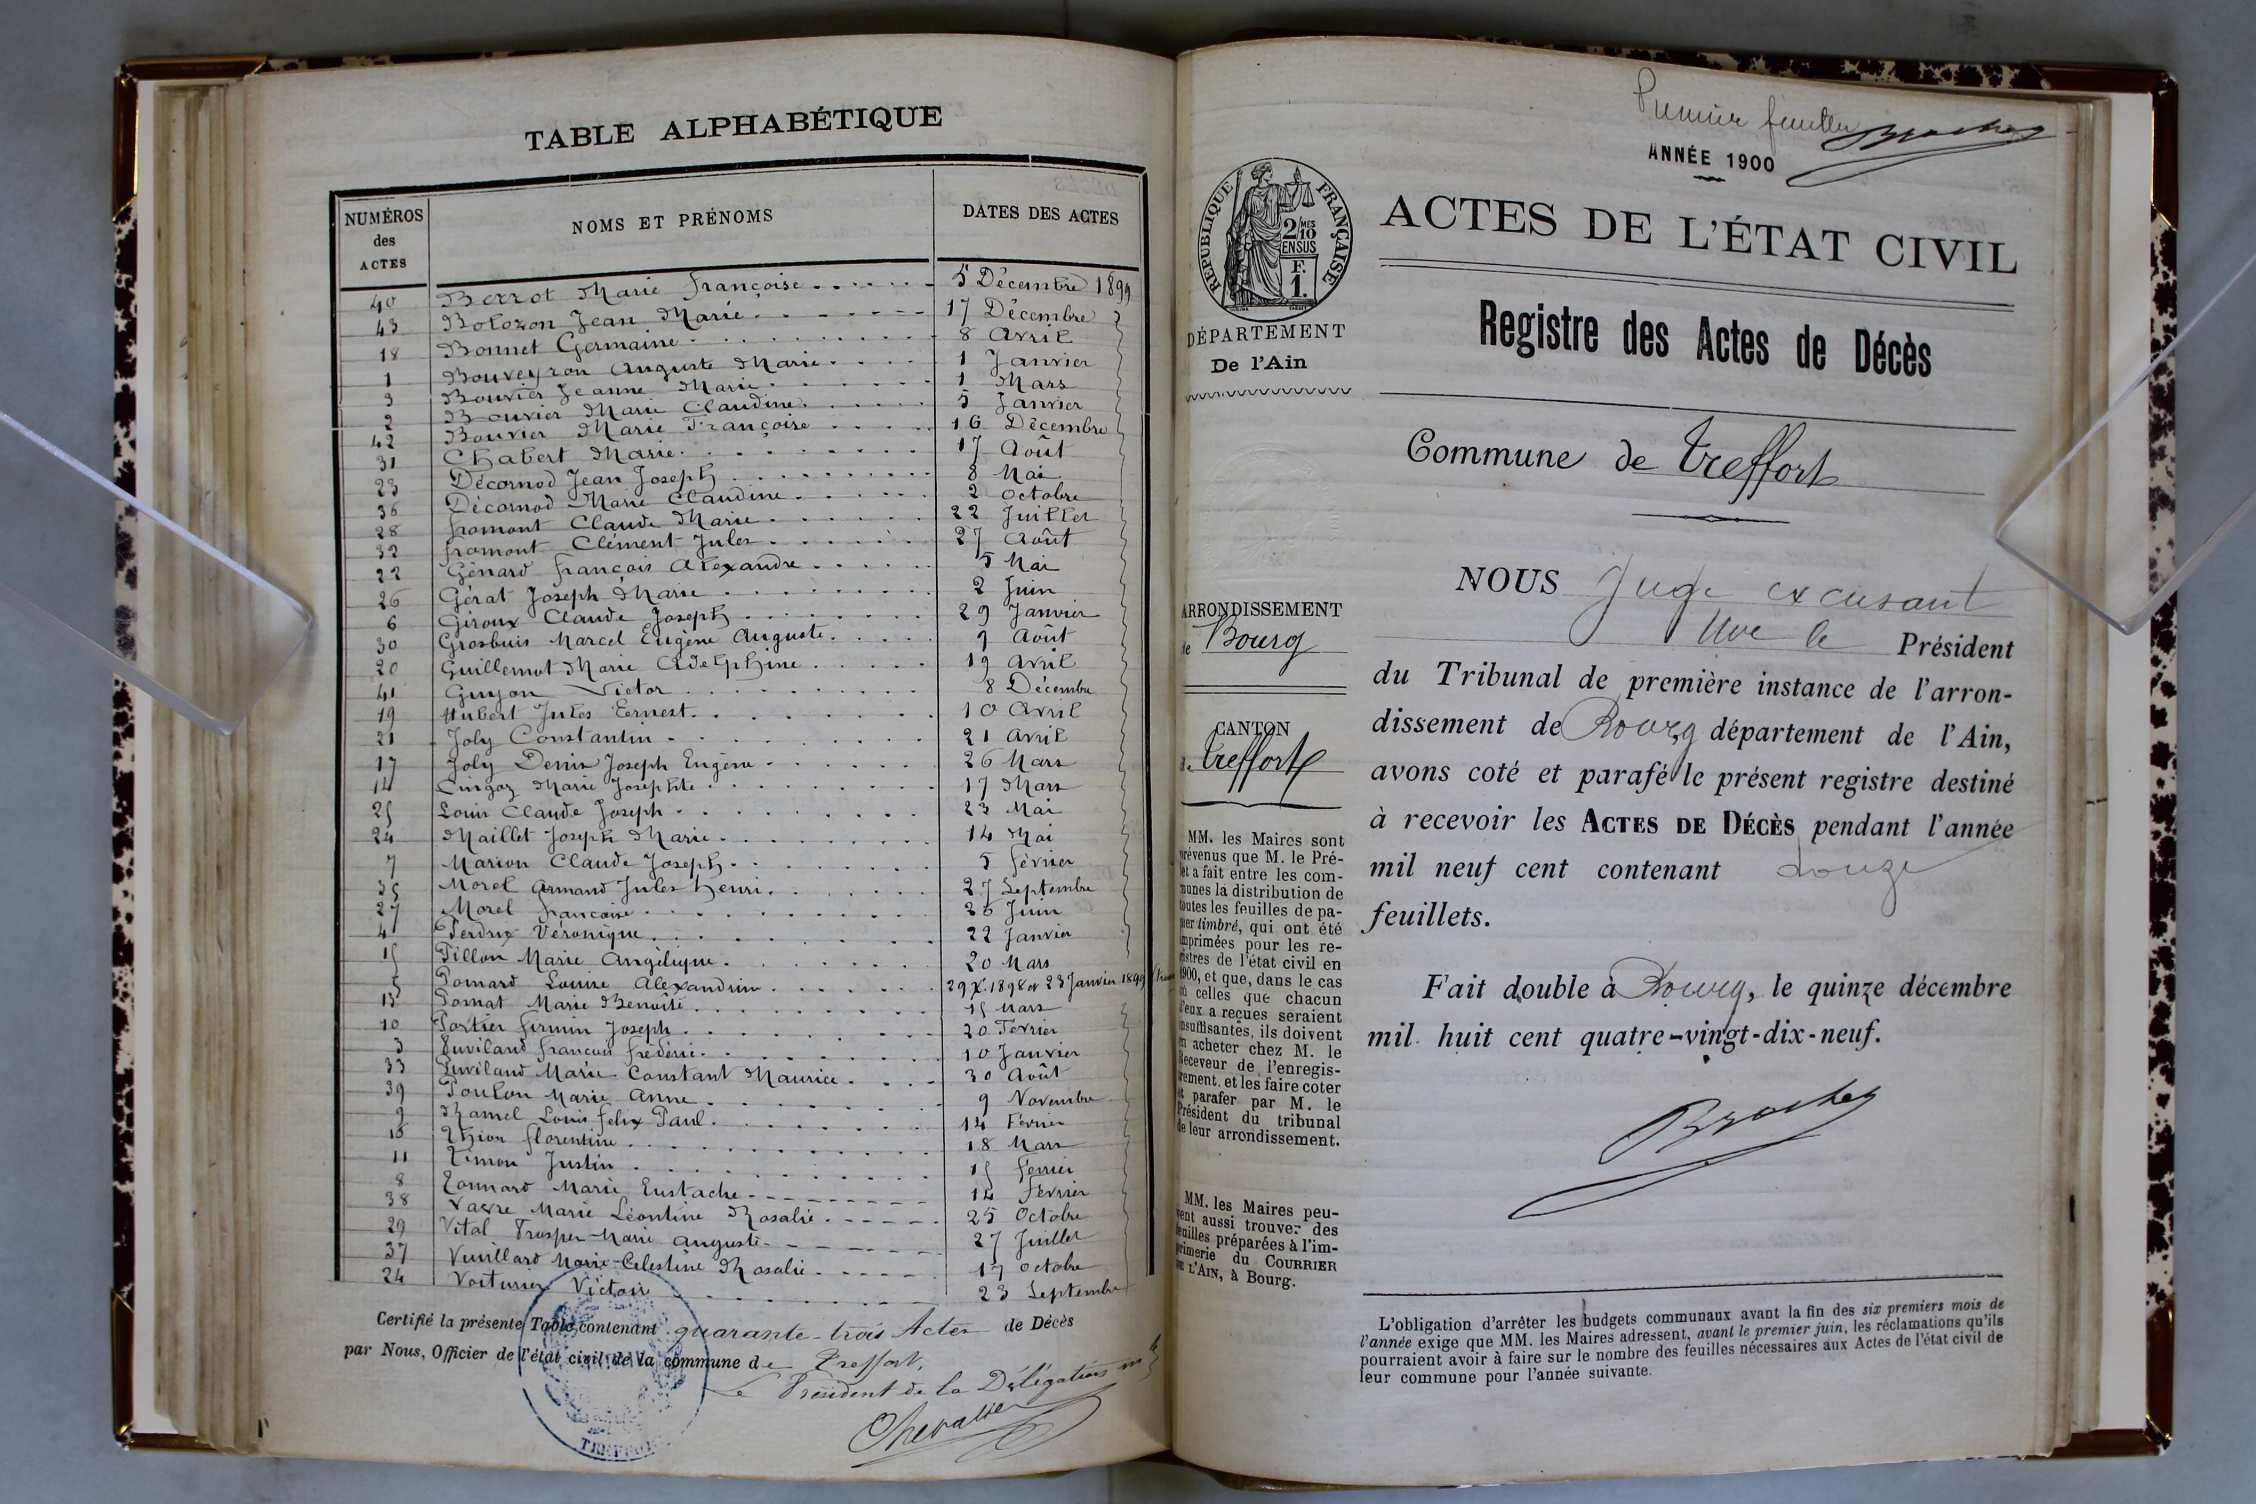 TABLE ALPHABÉTIQUE
NUMÉROS des ACTES
NOMS ET PRÉNOMS
DATES DES ACTES
40 Berrot Marie Françoise 5 Décembre 1899
43 Bolozon Jean Marie 17 Décembre
18 Bonnet Germaine 8 Avril
1 Bouveyron Auguste Marie 1 Janvier
3 Bouvier Jeanne Marie 1 Mars
2 Bouvier Marie Claudine 5 Janvier
42 Bouvier Marie Françoise 16 Décembre
31 Chabert Marie 17 Août
23 Décornod Jean Joseph 8 Mai
36 Décornod Marie Claudine 2 Octobre
28 Fromont Claude Marie 22 Juillet
32 Fromont Clément Jules 27 Août
22 Génard François Alexandre 5 Mai
26 Gérat Joseph Marie 2 Juin
6 Giroux Claude Joseph 29 Janvier
30 Grosbuis Marcel Eugène Auguste 9 Août
20 Guillemot Marie Adelphine 19 Avril
41 Guyon Victor 8 Décembre
19 Hubert Jules Ernest 10 Avril
21 Joly Constantin 21 Avril
17 Joly Denis Joseph Eugène 26 Mars
14 Marie Josephte 17 Mars
25 Louis Claude Joseph 23 Mai
24 Maillet Joseph Marie 14 Mai
7 Marion Claude Joseph 5 Février
35 Morel Armand Jules Henri 27 Septembre
27 Morel Françoise 26 Juin
4 Perdrix Véronique 22 Janvier
15 Pillon Marie Angélique 20 Mars
5 Pomard Louise Alexandrine 29 X. 1898 et 23 Janvier 1899
13 Pornat Marie Benoîte 15 Mars
10 Portier Firmin Joseph 20 Février
3 Puviland François Frédéric 10 Janvier
33 Puviland Marie Constant Maurice 30 Août
39 Poulon Marie Anne 9 Novembre
9 Ramel Louis Félix Paul 14 Février
16 Thion Florentine 18 Mars
11 Timon Justin 15 Février
8 Tonnard Marie Eustache 14 Février
38 Vavre Marie Léontine Rosalie 25 Octobre
29 Vital Prosper Marie Auguste 27 Juillet
37 Vuillard Marie-Célestine Rosalie 17 Octobre
24 Voiturier Victoire 23 Septembre
Certifié la présente Table contenant quarante-trois Actes de Décès
par Nous, Officier de l'état civil de la commune de Treffort.
Le Président de la Délégation
Chevallier
TREFFORT
Premier feuillet
Brochey
ANNÉE 1900
RÉPUBLIQUE FRANÇAISE
2/10 MES
EN SUS
F.
1.
ACTES DE L'ÉTAT CIVIL
DÉPARTEMENT
De l'Ain
Registre des Actes de Décès
Commune de Treffort
ARRONDISSEMENT
de Bourg
CANTON
de Treffort
MM. les Maires sont
prévenus que M. le Pré-
fet a fait entre les com-
munes la distribution de
toutes les feuilles de pa-
pier timbré, qui ont été
imprimées pour les re-
gistres de l'état civil en
1900, et que, dans le cas
où celles que chacun
d'eux a reçues seraient
insuffisantes, ils doivent
en acheter chez M. le
Receveur de l'enregis-
trement, et les faire coter
et parafer par M. le
Président du tribunal
de leur arrondissement.
MM. les Maires peu-
vent aussi trouver des
feuilles préparées à l'im-
primerie du COURRIER
DE L'AIN, à Bourg.
NOUS Juge excusant
Mr le Président
du Tribunal de première instance de l'arron-
dissement de Bourg département de l'Ain,
avons coté et parafé le présent registre destiné
à recevoir les ACTES DE DÉCÈS pendant l'année
mil neuf cent contenant douze
feuillets.
Fait double à Bourg, le quinze décembre
mil huit cent quatre-vingt-dix-neuf.
Brochey
L'obligation d'arrêter les budgets communaux avant la fin des six premiers mois de
l'année exige que MM. les Maires adressent, avant le premier juin, les réclamations qu'ils
pourraient avoir à faire sur le nombre des feuilles nécessaires aux Actes de l'état civil de
leur commune pour l'année suivante.